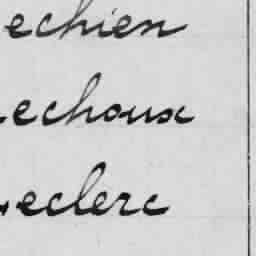 echien
echoux
eclerc